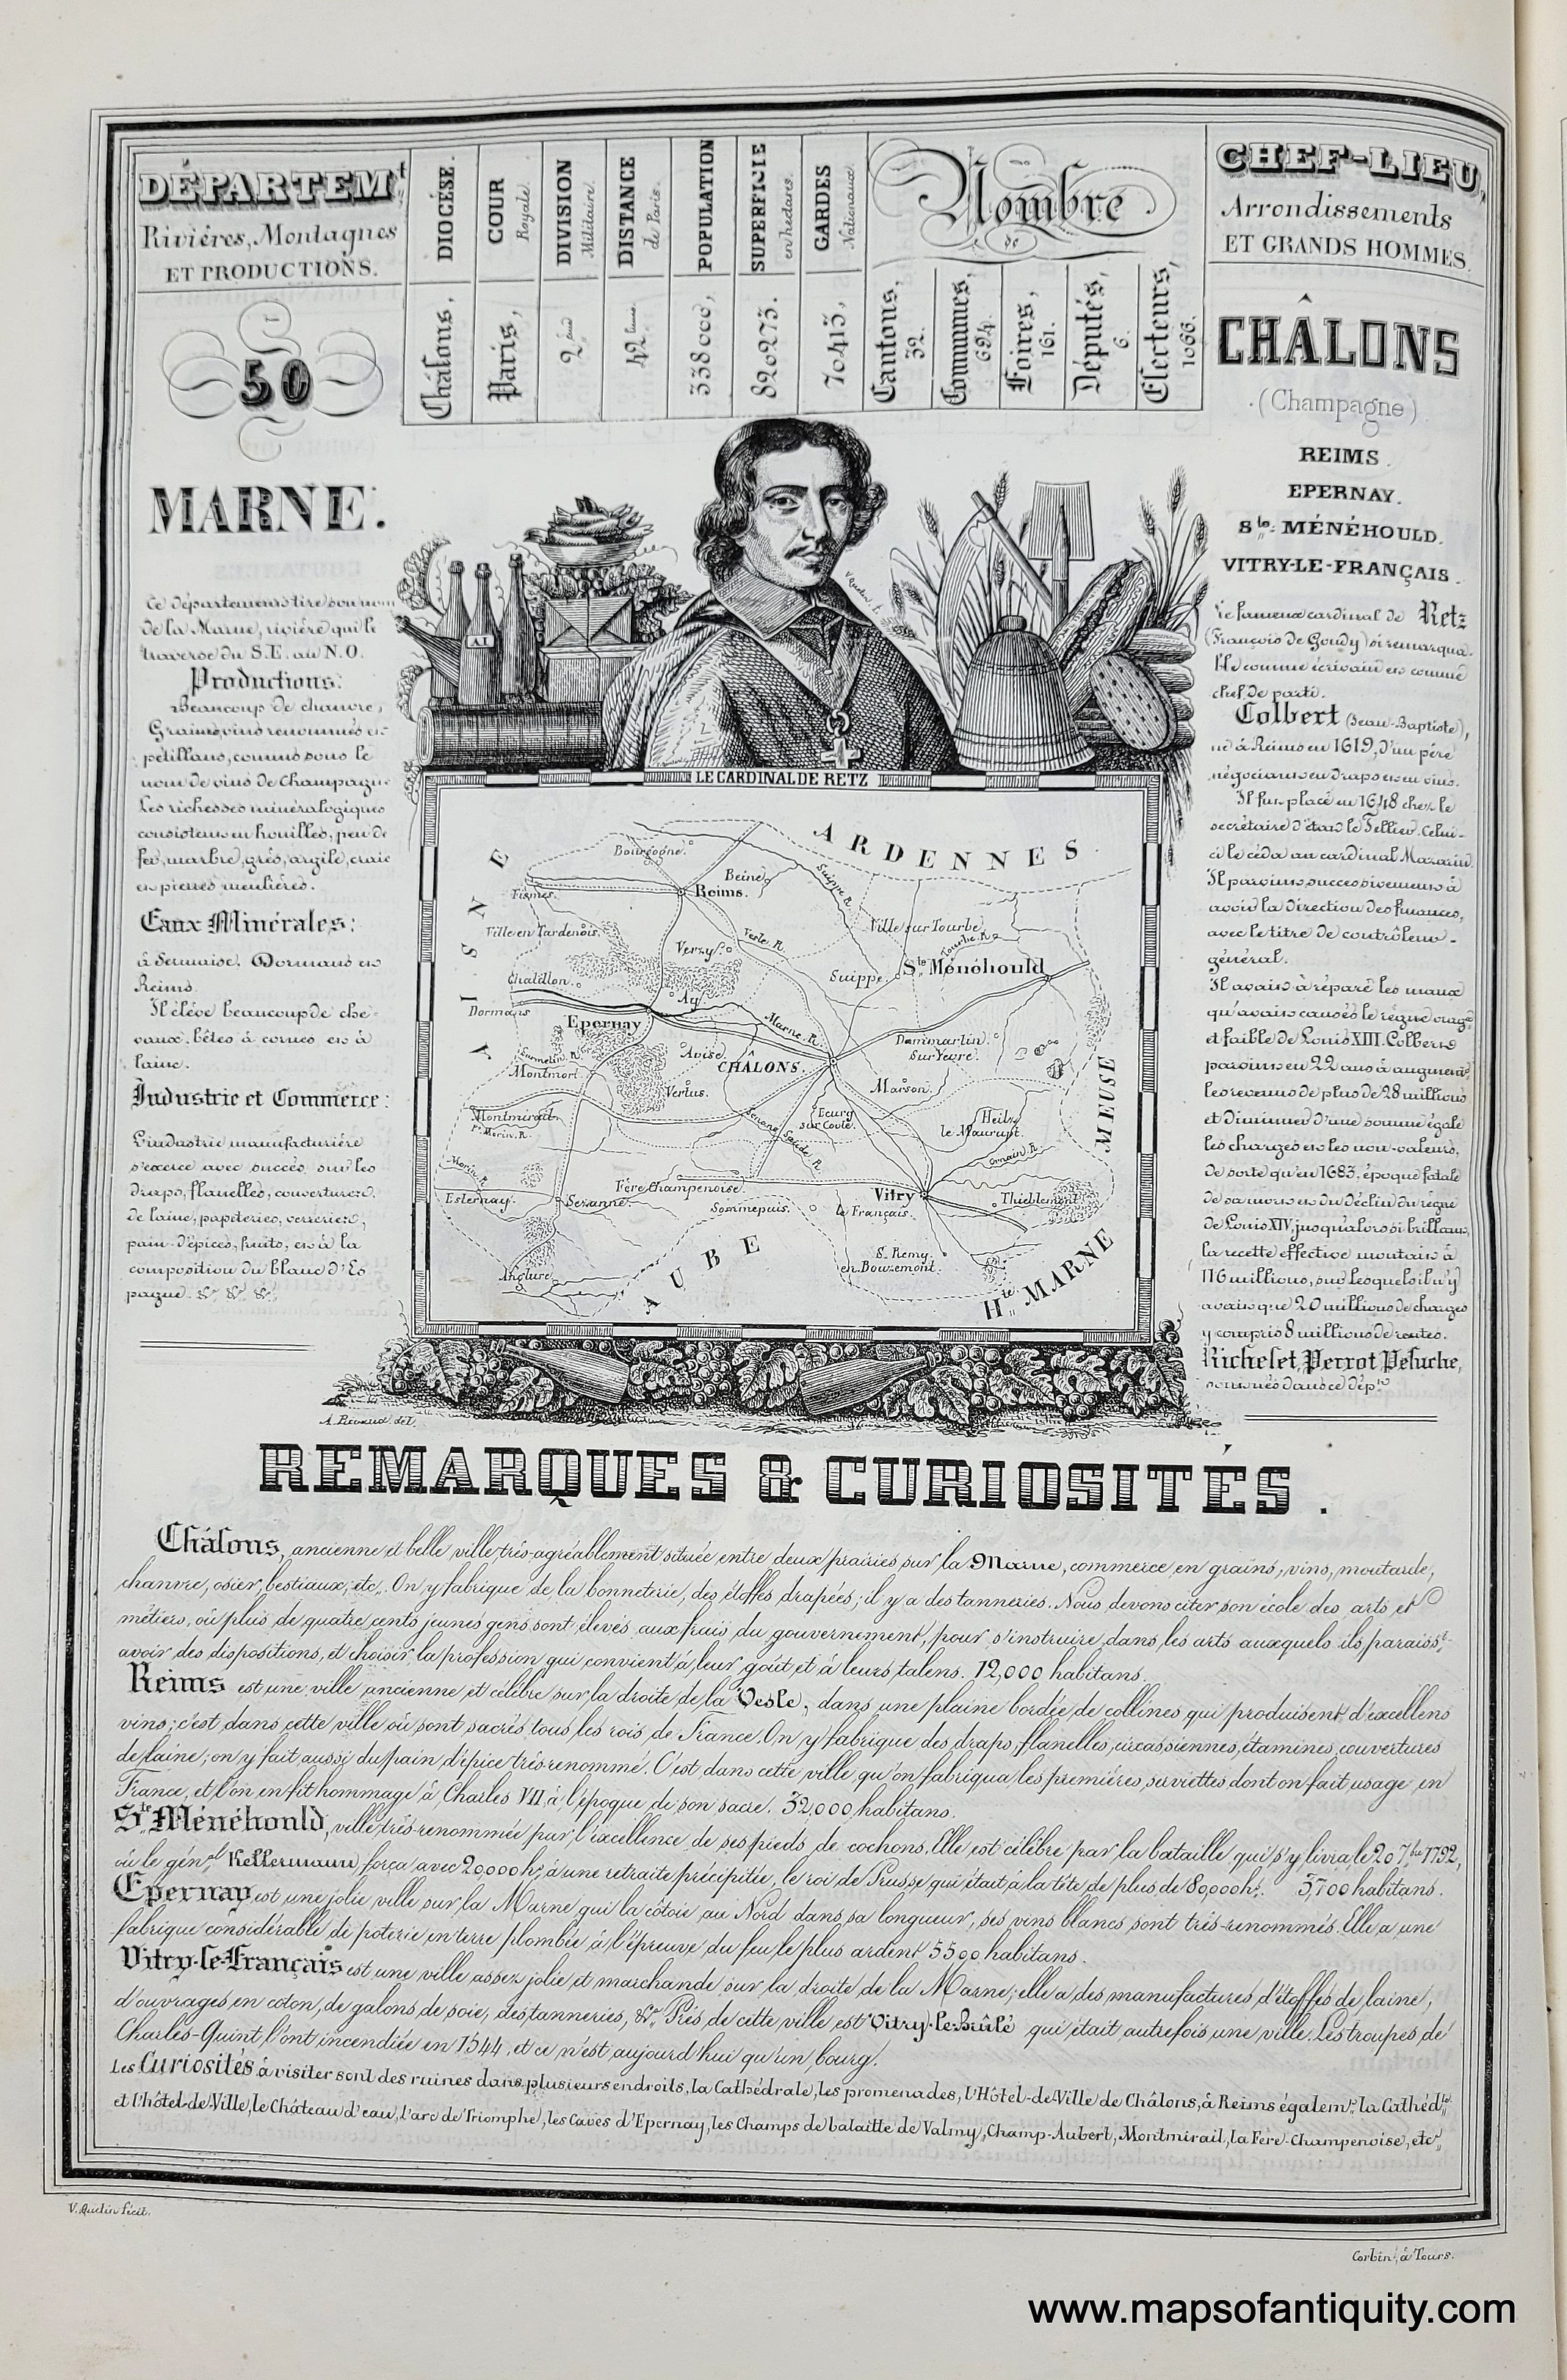 DÉPARTEMt
Rivières, Montagnes
ET PRODUCTIONS.
DIOCÉSE.
Châlons,
COUR
Royale.
Paris,
DIVISION
Militaire.
2ème
DISTANCE
de Paris.
42 lieues.
POPULATION
338000,
SUPERFICIE
en hectares.
820273.
GARDES
Nationaux.
70413,
Nombre
de
Cantons,
32.
Communes,
694.
Foires,
161.
Députés,
6.
Electeurs,
1066.
CHEF-LIEU,
Arrondissements
ET GRANDS HOMMES.
50
MARNE.
Ce département tire son nom
de la Marne, rivière qui le
traverse du S.E. au N.O.
Productions:
Beaucoup de chanvre,
Grains, vins renommés et
pétillans, connus sous le
nom de vins de Champagne
Les richesses minéralogiques
consistent en houilles, peu de
fer, marbre, grés, argile, craie
et pierres meulières.
Eaux Minérales:
à Sermaise. Dormans et
Reims.
Il élève beaucoup de che-
vaux, bêtes à cornes et à
laine.
Industrie et Commerce:
L'industrie manufacturière
s'exerce avec succès sur les
draps, flanelles, couvertures
de laine, papeteries, verreries,
pain-d'épices, fruits, et à la
composition du blanc d'Es
pagne. &c, &c, &c,
CHÂLONS
(Champagne)
REIMS.
EPERNAY.
Ste MÉNÉHOULD.
VITRY-LE-FRANÇAIS.
Le fameux cardinal de Retz
(François de Goudy) si remarqua-
ble comme écrivain et comme
chef de parti.
Colbert (Jean-Baptiste),
né à Reims en 1619, d'un père
négociant en draps et en vins.
Il fut placé en 1648 chez le
secrétaire d'état le Tellier. Celui-
ci le céda au cardinal Mazarin.
Il parvint successivement à
avoir la direction des finances,
avec le titre de contrôleur-
général.
Il avait à réparer les maux
qu'avait causés le règne orag
et faible de Louis XIII. Colbert
parvint en 22 ans à augmenter
les revenus de plus de 28 millions
et diminuer d'une somme égale
les charges et les non-valeurs,
de sorte qu'en 1683, époque fatale
de sa mort et du déclin du règne
de Louis XIV, jusqu'alors si brillant,
la recette effective montait à
116 millions, sur lesquels il n'y
avait que 20 millions de charges
y compris 8 millions de rentes.
Richelet, Perrot Peluche,
sont nés dans ce dépt.
AI
LE CARDINAL DE RETZ
ARDENNES.
AISNE
MEUSE
AUBE
Hte MARNE
Bourgogne.
Beine
Suippe R.
Fismes.
Reims.
Ville en Tardenois.
Verzy.
Vesle R.
Ville sur Tourbe
Tourbe R.
Suippe.
Ste Ménéhould
Chatillon.
Ay.
Dormans
Epernay
Marne R.
Dammartin.
Sur Yevre.
Surmelin R.
Montmort
Avise
CHÂLONS.
Vertus.
Marson.
Montmirail.
Pt Morin. R.
Ecury
sur Coole.
Heilz
le Maurupt.
Somme Soude R.
Ornain R.
Morin R.
Esternay.
Sezanne.
Fère Champenoise.
Sommepuis.
Vitry
le Français.
Thieblemont
St Remy.
en Bouzemont.
Anglure
A. Rivaud del.
REMARQUES & CURIOSITÉS.
Châlons, ancienne et belle ville très-agréablement située entre deux prairies sur la Marne, commerce en grains, vins, moutarde,
chanvre, osier, bestiaux, etc. On y fabrique de la bonneterie, des étoffes drapées; il y a des tanneries. Nous devons citer son école des arts et
métiers, où plus de quatre cents jeunes gens sont élevés aux frais du gouvernement, pour s'instruire dans les arts auxquels ils paraisst
avoir des dispositions, et choisir la profession qui convient à leur goût et à leurs talens. 12,000 habitans.
Reims est une ville ancienne et célèbre sur la droite de la Vesle, dans une plaine bordée de collines qui produisent d'excellens
vins; c'est dans cette ville où sont sacrés tous les rois de France. On y fabrique des draps, flanelles, circassiennes, étamines, couvertures
de laine; on y fait aussi du pain d'épice très-renommé. C'est dans cette ville qu'on fabriqua les premières serviettes dont on fait usage en
France, et l'on en fit hommage à Charles VII, à l'époque de son sacre. 32,000 habitans.
Ste Ménéhould, ville très-renommée par l'excellence de ses pieds de cochons. Elle est célèbre par la bataille qui s'y livra le 20 7bre 1792,
où le génal Kellermann força avec 20,000 h. à une retraite précipitée, le roi de Prusse qui était à la tête de plus de 80,000 h. 3,700 habitans.
Epernay est une jolie ville sur la Marne qui la côtoie au Nord dans sa longueur, ses vins blancs sont très-renommés. Elle a une
fabrique considérable de poterie en terre plombée à l'épreuve du feu le plus ardent 5500 habitans.
Vitry-le-Français est une ville assez jolie et marchande sur la droite de la Marne; elle a des manufactures d'étoffes de laine,
d'ouvrages en coton, de galons de soie, des tanneries, &c. Près de cette ville est Vitry-le-brûlé qui était autrefois une ville. Les troupes de
Charles-Quint l'ont incendiée en 1544, et ce n'est aujourd'hui qu'un bourg.
Les Curiosités à visiter sont des ruines dans plusieurs endroits, la Cathédrale, les promenades, l'Hôtel-de-Ville de Châlons, à Reims égalemt la Cathédle
et l'hôtel-de-Ville, le Château d'eau, l'arc de Triomphe, les Caves d'Epernay, les Champs de bataille de Valmy, Champ-Aubert, Montmirail, la Fere-Champenoise, etc
V. Quetin fécit.
Corbin, à Tours.
www.mapsofantiquity.com